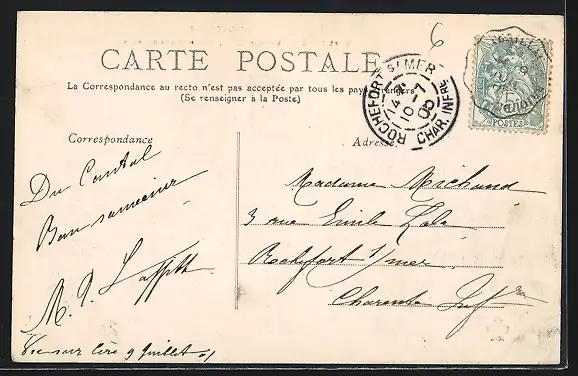 6
CARTE POSTALE
La Correspondance au recto n'est pas acceptée par tous les pays étrangers
(Se renseigner à la Poste)
ROCHEFORT S/ MER
14 30
10 - 7
05
CHAR. INFRE
POSTES
Correspondance
Adresse
Du Cantal
Bon souvenir
Madame Michaud
3 rue Emile
Rochefort s/ mer
Charente Infre
Vic sur Cère 9 Juillet